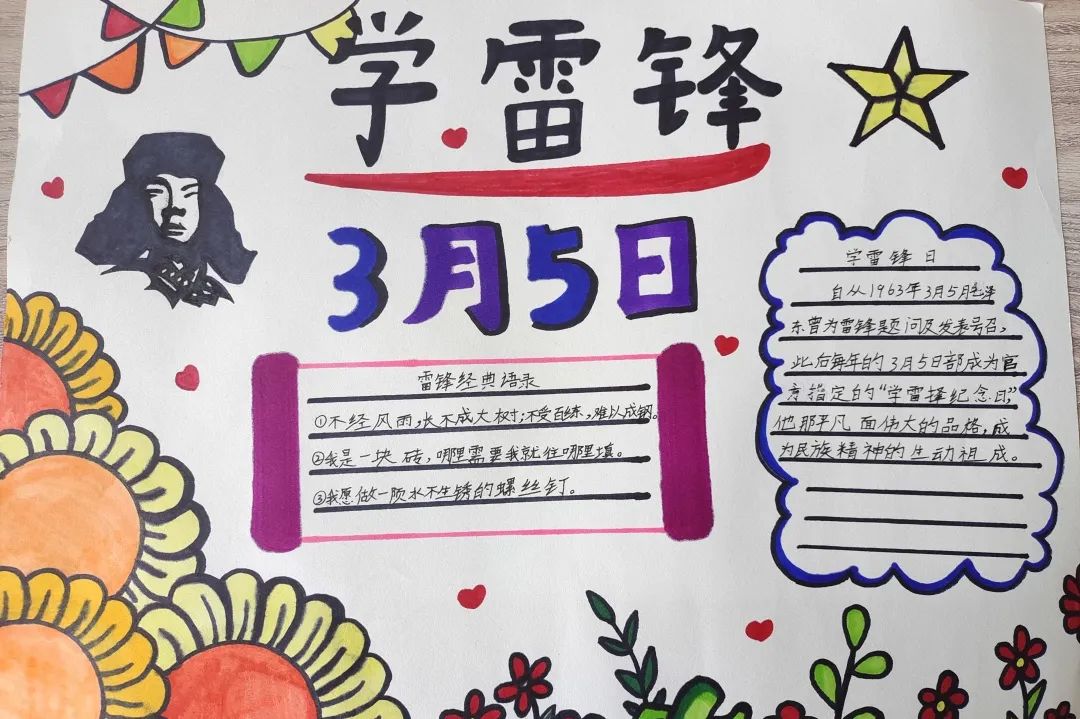 学雷锋
3月5日
雷锋经典语录
①不经风雨,长不成大树;不受百练,难以成钢。
②我是一块砖,哪里需要我就住哪里填。
③我愿做一 水不生锈的螺丝钉。
学雷锋日
自从1963年3月5月毛泽
东曾为雷锋题问及发表号召,
此后每年的3月5日部成为官
指定的“学雷择纪念日”,
他那平凡 面伟大的品格,成
为民族精神的生动组成。